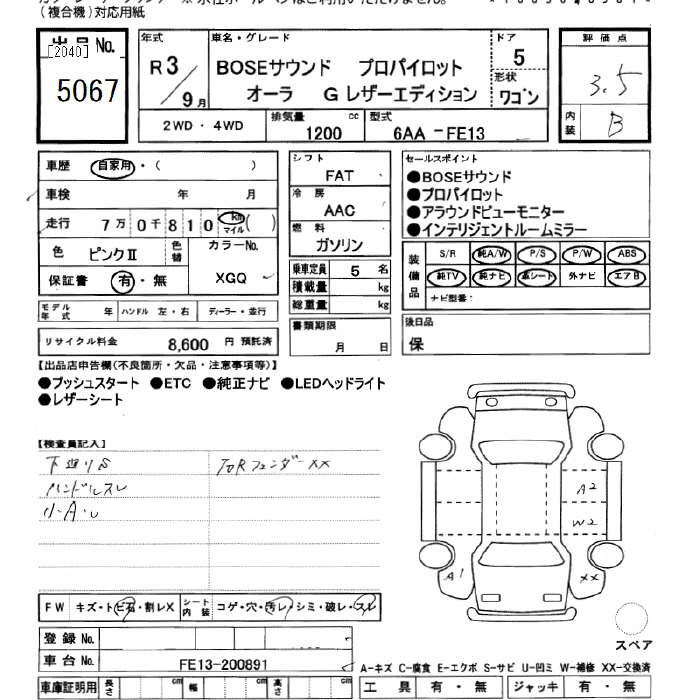 (複合機)対応用紙
出品 No.
[2040]
5067
年式 R3/9月
車名・グレード
BOSEサウンド プロパイロット
オーラ G レザーエディション
ドア 5
形状 ワゴン
評価点 3.5
内装 B
2WD・4WD
排気量 1200 cc
型式 6AA-FE13
車歴 自家用・( )
車検 年 月
走行 7万0千810 km マイル ( )
色 ピンクⅡ
色替
カラーNo. XGQ
保証書 有・無
モデル年式 年 ハンドル 左・右 ディーラー・並行
リサイクル料金 8,600 円 預託済
シフト FAT
冷房 AAC
燃料 ガソリン
乗車定員 5 名
積載量 kg
総重量 kg
書類期限
月 日
セールスポイント
●BOSEサウンド
●プロパイロット
●アラウンドビューモニター
●インテリジェントルームミラー
装備品
S/R 純A/W P/S P/W ABS
純TV 純ナビ 革シート 外ナビ エアB
ナビ型番:
後日品
保
【出品店申告欄(不良箇所・欠品・注意事項等)】
●プッシュスタート ●ETC ●純正ナビ ●LEDヘッドライト
●レザーシート
【検査員記入】
下廻りS
ハンドルスレ
小・A・U
右Rフェンダーxx
A2
W2
A1
XX
FW キズ・トビ石・割レX
シート内装 コゲ・穴・汚レ・シミ・破レ・スレ
スペア
登録 No.
車台 No. FE13-200891
A-キズ C-腐食 E-エクボ S-サビ U-凹ミ W-補修 XX-交換済
車庫証明用 長さ cm 幅 cm 高さ cm
工具 有・無 ジャッキ 有・無